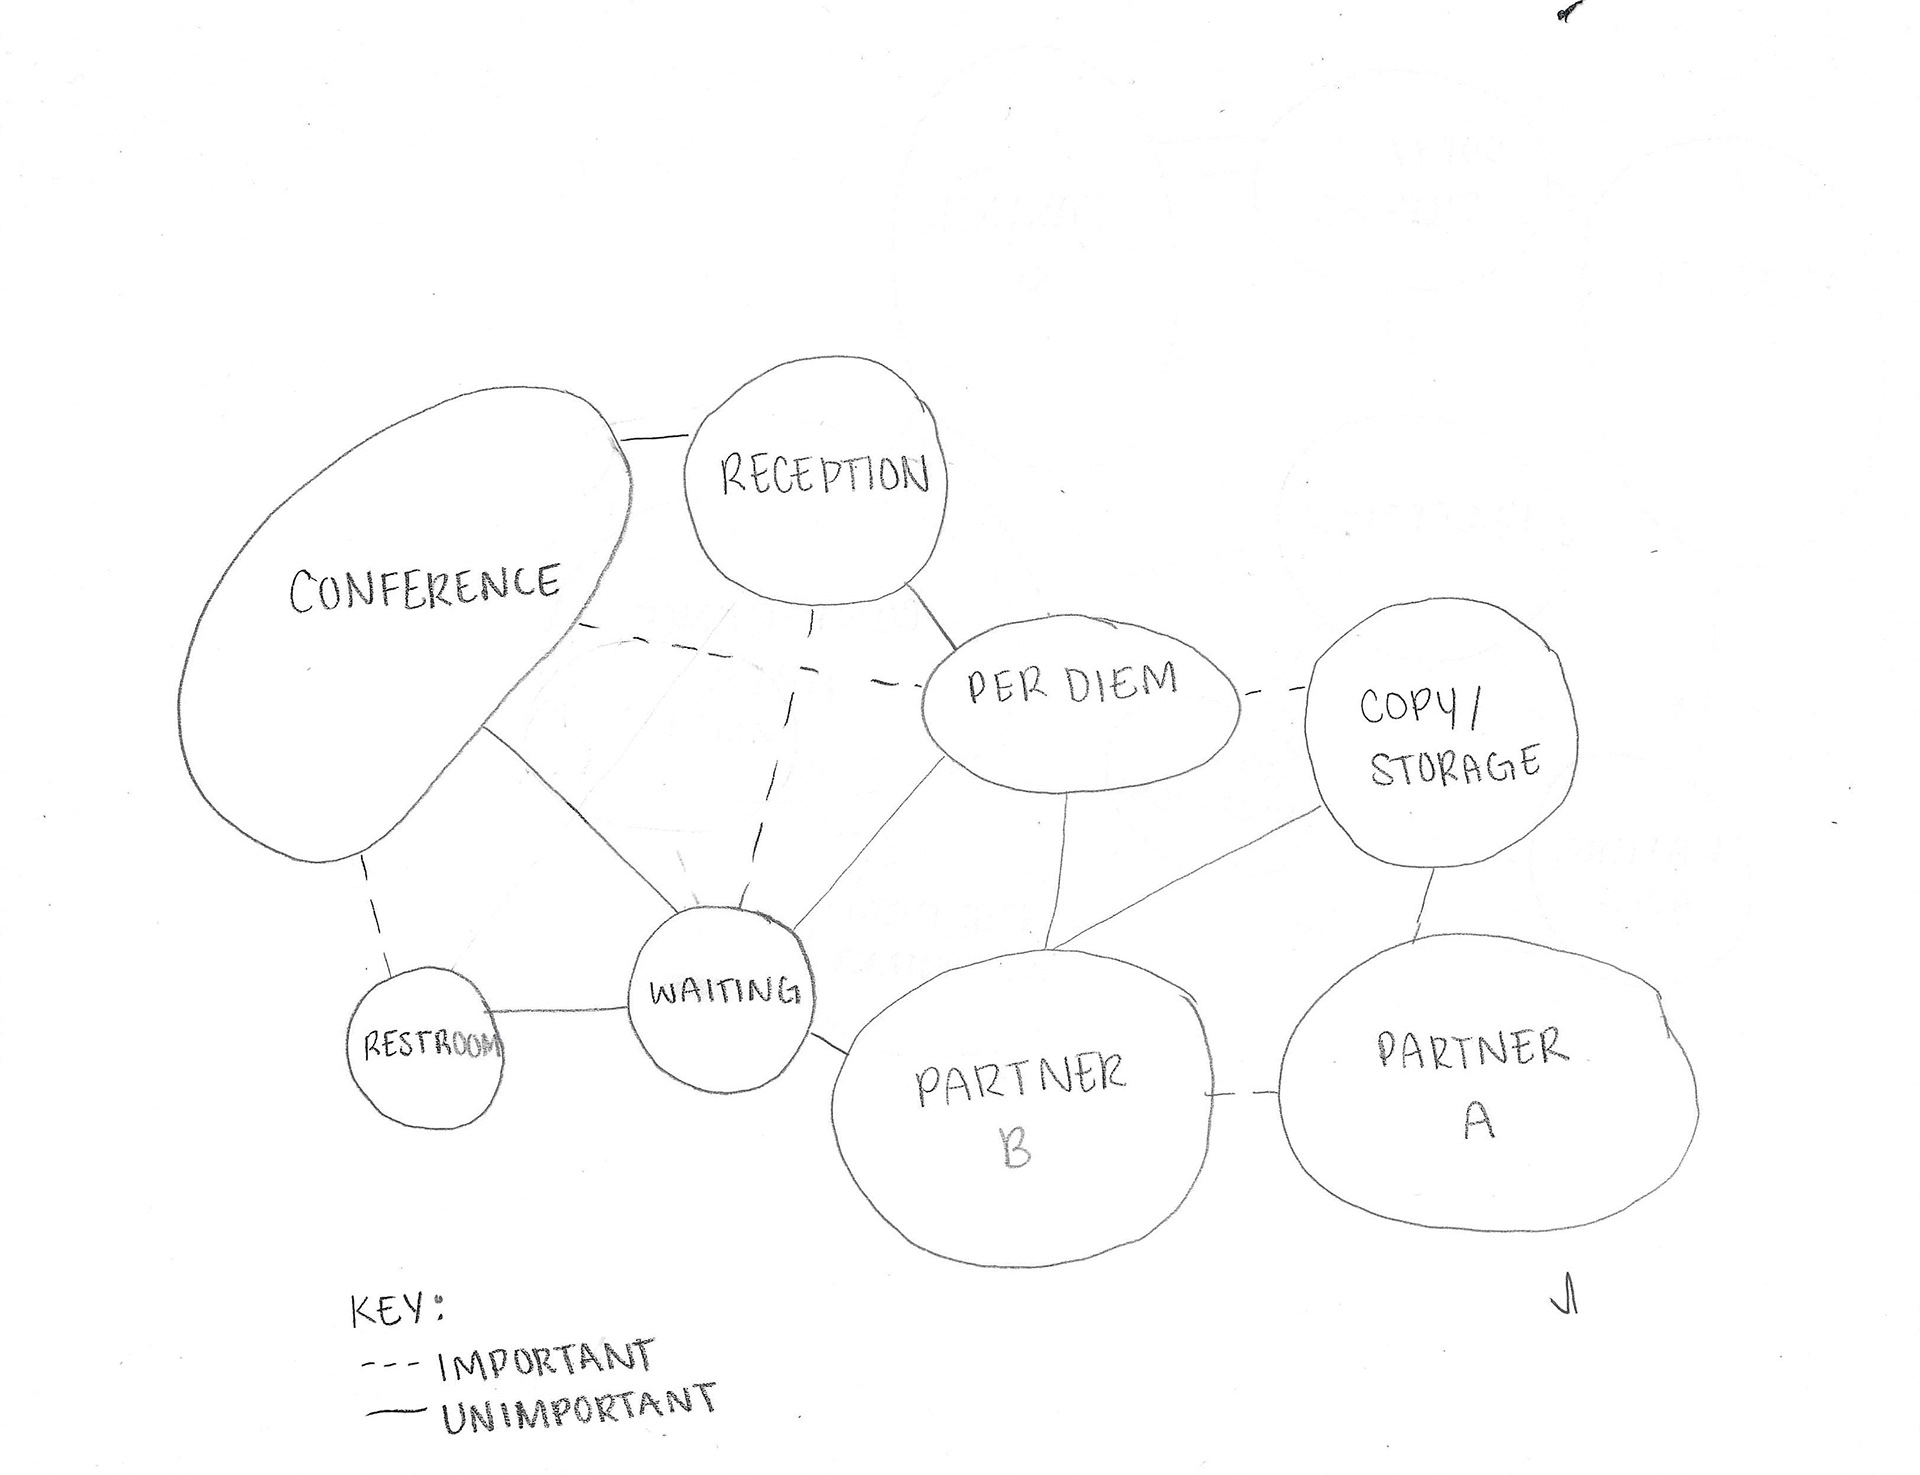 RECEPTION
CONFERENCE
PER DIEM
COPY/
STORAGE
WAITING
RESTROOM
PARTNER
B
PARTNER
A
KEY:
--- IMPORTANT
— UNIMPORTANT